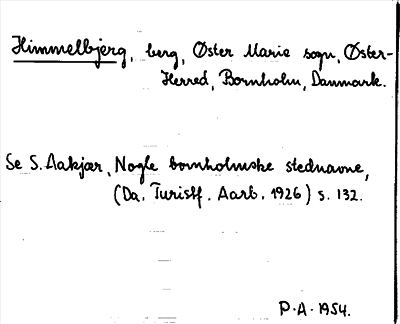 Himmelbjerg, berg, Øster Marie sogn, Øster-
Herred, Bornholm, Danmark.
Se S. Aakjær, Nogle bornholmske stednavne,
(Da. Turistf. Aarb. 1926) s. 132.
P.A. 1954.